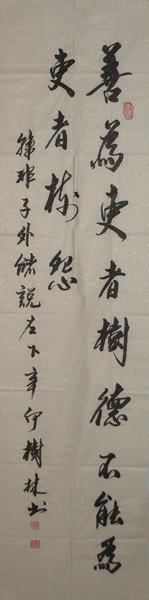 善為吏者樹德不能為
吏者樹怨
韓非子外儲說左下辛卯樹林书